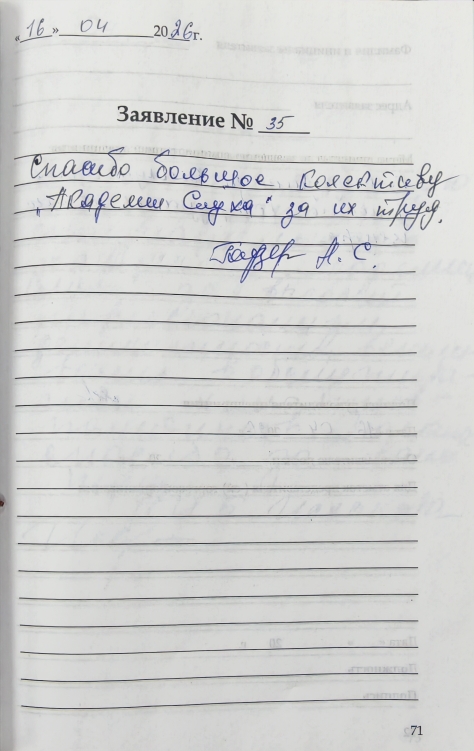 «16» 04 2026г.
Заявление № 35
Спасибо большое колективу
„Академии Слуха" за их труд.
А. С.
71